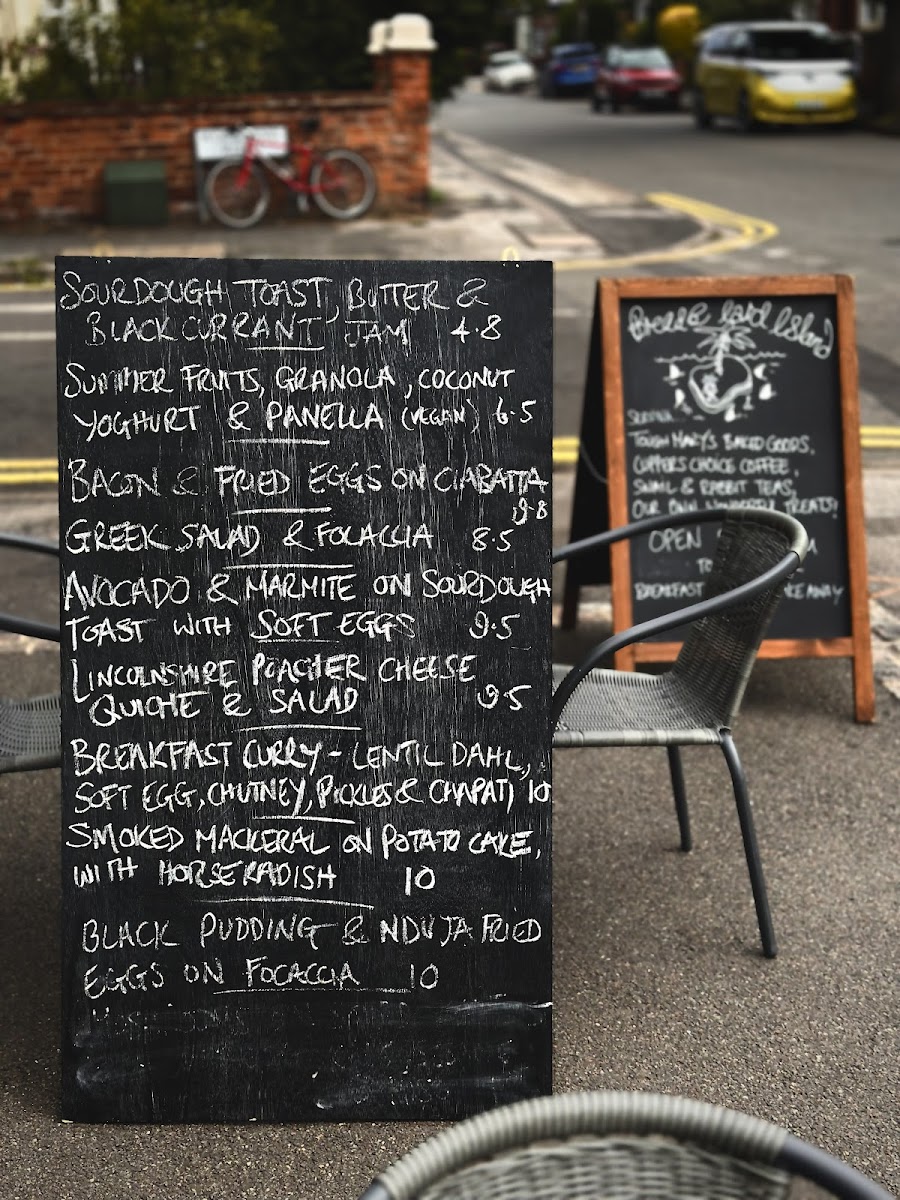 SOURDOUGH TOAST, BUTTER &
BLACKCURRANT JAM 4.8
SUMMER FRUITS, GRANOLA, COCONUT
YOGHURT & PANELLA (VEGAN) 6.5
BACON & FRIED EGGS ON CIABATTA
9.8
GREEK SALAD & FOCACCIA 8.5
AVOCADO & MARMITE ON SOURDOUGH
TOAST WITH SOFT EGGS 9.5
LINCOLNSHIRE POACHER CHEESE
QUICHE & SALAD 9.5
BREAKFAST CURRY - LENTIL DAHL,
SOFT EGG, CHUTNEY, PICKLES & CHAPATI 10
SMOKED MACKERAL ON POTATO CAKE,
WITH HORSERADISH 10
BLACK PUDDING & NDUJA FRIED
EGGS ON FOCACCIA 10
Island
TOUGH MARY'S BAKED GOODS,
CUPPERS CHOICE COFFEE,
SNAIL & RABBIT TEAS,
OUR OWN WONDERFUL TREATS!
OPEN
TO
BREAKFAST AWAY